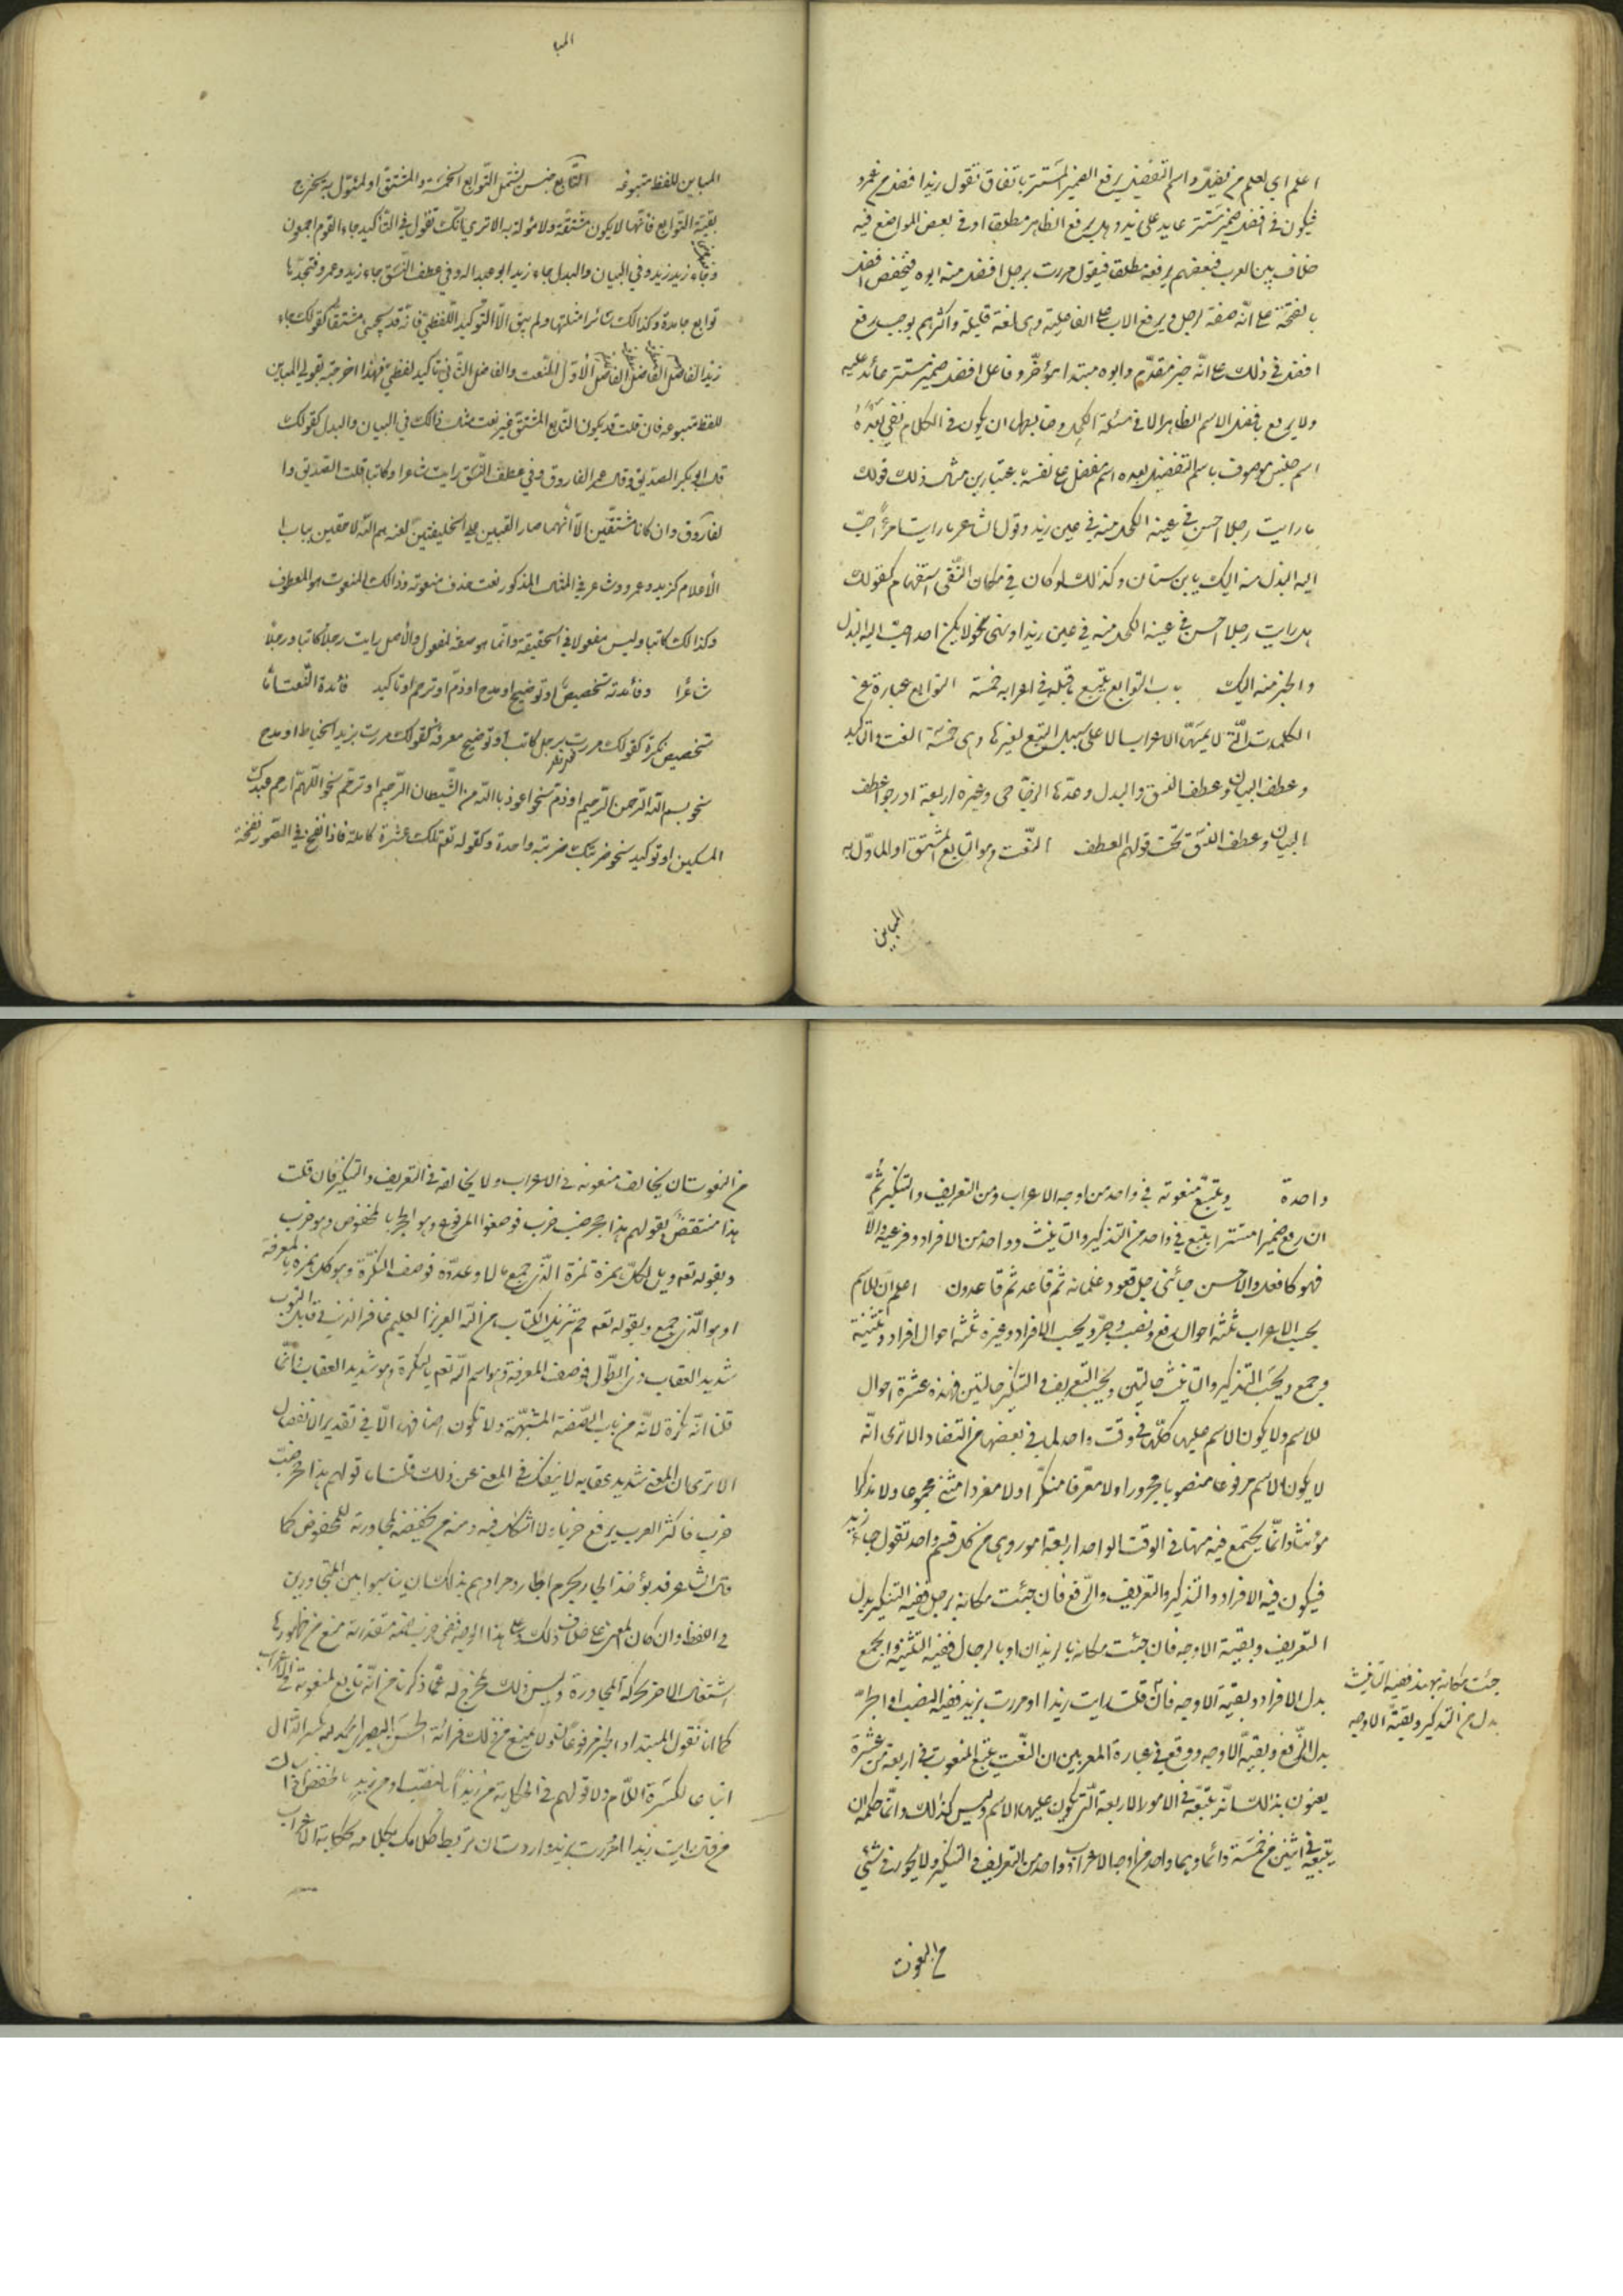 اعلم اي لعلم من يضل واسم التفضيل يرفع الضمير المستتر باتفاق تقول زيد افضل من عمرو
فيكون في افضل ضمير مستتر عايد على زيد وهل يرفع الظاهر مطلقا او في بعض المواضع فيه
خلاف بين العرب فبعضهم يرفعه مطلقا فيقول مررت برجل افضل منه ابوه فيخفض افضل
بالفتحة على انه صفة لرجل ويرفع الاب على الفاعلية وهي لغة قليلة واكثرهم يوجب رفع
افضل في ذلك على انه خبر مقدم وابوه مبتدا مؤخر وفاعل افضل ضمير مستتر عائد عليه
ولا يرفع بافضل الاسم الظاهر الا في مسئلة الكحل وضابطها ان يكون في الكلام نفي بعده
اسم جنس موصوف باسم التفضيل بعده اسم مفضل على نفسه باعتبارين مثال ذلك قولك
ما رايت رجلا احسن في عينه الكحل منه في عين زيد وقول الشاعر ما رايت امرءا احب
اليه البذل منه اليك يا بن سنان وكذلك لو كان في مكان النفى استفهام كقولك
هل رايت رجلا احسن في عينه الكحل منه في عين زيد او نهى نحو لا يكن احد احب اليه البذل
و الخير منه اليك باب التوابع يتبع ما قبله في اعرابه خمسة التوابع عبارة عن
الكلمات التى لا يمسها الاعراب الا على سبيل التبع لغيرها وهي خمسة النعت والتاكيد
وعطف البيان وعطف النسق والبدل وعدها الزجاجى وغيره اربعة ادرجوا عطف
البيان وعطف النسق تحت قولهم العطف النعت وهو التابع المشتق او الماول به
المباين
المبا
المباين للفظ متبوعه التابع جنس يشتمل التوابع الخمسة والمشتق او المئول به يخرج
بقية التوابع فانها لا يكون مشتقة ولا مؤلة به الا ترى انك تقول في التأكيد جاء القوم اجمعون
وجاء زيد زيد وفي البيان والبدل جاء زيد ابو عبد اله وفي عطف النسق جاء زيد وعمرو فتجدها
توابع جامدة وكذالك سائر امثلتها ولم يبق الا التوكيد اللفظي فانه قد يجئ مشتقا كقولك جاء
زيد الفاضل الفاضل الفاضل الأول النعت والفاضل الثاني تاكيد لفظي فلهذا اخرجته بقولي المباين
للفظ متبوعه فان قلت قد يكون التابع المشتق غير نعت مثال ذالك في البيان والبدل كقولك
قال ابو بكر الصديق وقال عمر الفاروق وفي عطف النسق رايت شاعرا وكاتبا قلت الصديق وا
لفاروق وان كانا مشتقين الا انهما صارا لقبين على الخليفتين لعنهم الله لاحقين بباب ا
لأعلام كزيد وعمرو وشاعر في المثال المذكور نعت حذف منعوته وذالك المنعوت هو المعطوف
وكذالك كاتبا وليس مفعولا في الحقيقة وانما هو صفة لمفعول والأصل رايت رجلا كاتبا ورجلا
شاعرا وفائدته تخصيص او توضيح او مدح او ذم او ترحم او تاكيد فائدة النعت اما
تخصيص نكرة كقولك مررت برجل كاتب او توضيح معرفة كقولك مررت بزيد الخياط او مدح
نحو بسم الله الرحمن الرحيم او ذم نحو اعوذ بالله من الشيطان الرجيم او ترحم نحو اللهم ارحم عبدك
المسكين او توكيد نحو ضربتك ضربة واحدة وكقوله تعم تلك عشرة كاملة فاذا نفخ في الصور نفخة
واحدة ويتبع منعوته في واحد من اوجه الاعراب ومن التعريف والتنكير ثم
ان رفع ضميرا مستترا يتبع في واحد من التذكير والتانيث وواحد من الافراد وفرعيه والا
فهو كالفعل والاحسن جائنى رجل قعود غلمانه ثم قاعد ثم قاعدون اعلم ان للاسم
بحسب الاعراب ثلثة احوال رفع ونصب وجر وبحسب الافراد وغيره ثلثة احوال افراد وتثنية
وجمع وبحسب التذكير والتانيث حالتين وبحسب التعريف و التنكير حالتين فهذه عشرة احوال
للاسم ولا يكون الاسم عليها كلها في وقت واحد لما في بعضها من التضاد الا ترى انه
لا يكون الاسم مرفوعا منصوبا مجرورا ولا معرفا منكرا ولا مفردا مثنى مجموعا ولا مذكرا
مؤنثا وانما يجتمع فيه منها في الوقت الواحد اربعة امور وهي من كل قسم واحد تقول جاء زيد
فيكون فيه الافراد والتذكير والتعريف والرفع فان جئت مكانه برجل ففيه التنكير بدل
التعريف وبقية الاوجه فان جئت مكانه بالزيدان او بالرجال ففيه التثنية والجمع
بدل الافراد وبقية الاوجه فان قلت رايت زيدا او مررت بزيد ففيه النصب او الجر
بدل الرفع وبقية الاوجه ووقع في عبارة المعربين ان النعت يتبع المنعوت في اربعة من عشرة
يعنون بذالك انه يتبعه في الامور الاربعة التى يكون عليها الاسم وليس كذالك وانما حكمه ان
يتبعه في اثنين من خمسة دائما وهما واحد من اوجه الاعراب وواحد من التعريف و التنكير ولا يجوز في شئ
جئت مكانه بهند ففيه التانيث
بدل من التذكير وبقية الاوجه
من النعوت
من النعوت ان يخالف منعوته في الاعراب ولا يخالفه في التعريف والتنكير فان قلت
هذا منتقض بقولهم هذا جحر ضب خرب فوصفوا المرفوع وهو الجحر بالمخفوض وهو خرب
وبقوله تعم ويل لكل همزة لمزة الذى جمع مالا وعدده فوصف النكرة وهو كل همزة بالمعرفة
وهو الذى جمع وبقوله تعم حم تنزيل الكتاب من الله العزيز العليم غافر الذنب وقابل التوب
شديد العقاب ذى الطول فوصف المعرفة وهو اسم الله تعم بالنكرة وهو شديد العقاب وانما
قلنا انه نكرة لانه من باب الصفة المشبهة ولا تكون اضافتها الا في تقدير الانفصال
الا ترى ان المعنى شديد عقابه لا ينفك في المعنى عن ذلك قلت اما قولهم هذا جحر ضب
خرب فاكثر العرب يرفع خربا ولا اشكال فيه ومنهم من يخفضه لمجاورته للمخفوض كما
قال الشاعر قد يؤخذ الجار بجرم الجار ومرادهم بذلك ان يناسبوا بين المتجاورين
في اللفظ وان كان المعنى على خلاف ذلك وعلى هذا الوجه ففي خرب ضمة مقدرة منع من ظهورها
اشتغال الاخر بحركة المجاورة وليس ذلك بمخرج له عما ذكرناه من انه تابع لمنعوته في الاعراب
كما انا نقول المبتدا والخبر مرفوعان ولا يمنع من ذلك قرائة الحسن البصرى الحمد لله بكسر الدال
اتباعا لكسرة اللام ولا قولهم في الحكاية من زيدا بالنصب او من زيد بالخفض اذا سالت
من قال رايت زيدا او مررت بزيد واردت ان تربط كلامك بكلامه بحكاية الاعراب